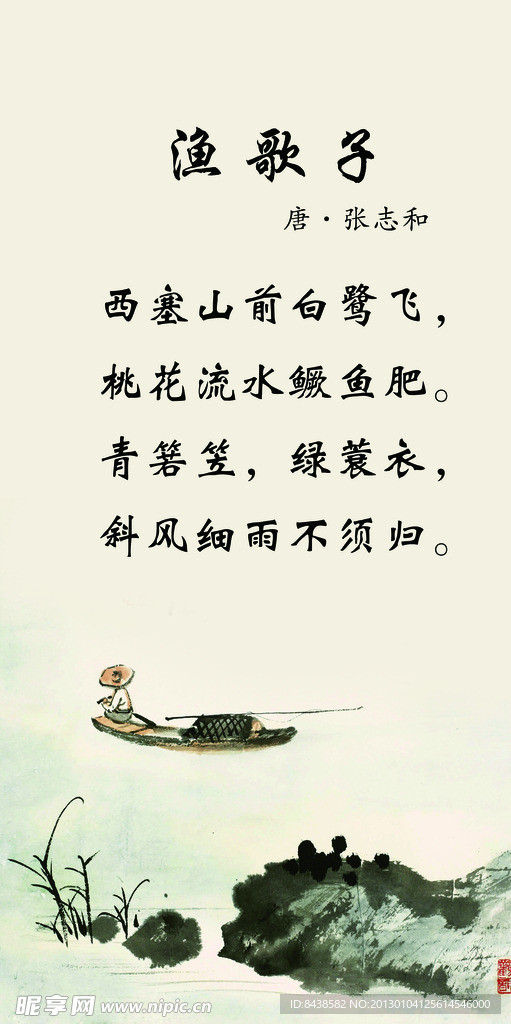 渔歌子
唐·张志和
西塞山前白鹭飞，
桃花流水鳜鱼肥。
青箬笠，绿蓑衣，
斜风细雨不须归。
昵享网 www.nipic.cn
ID:8438582 NO:20130104125614546000